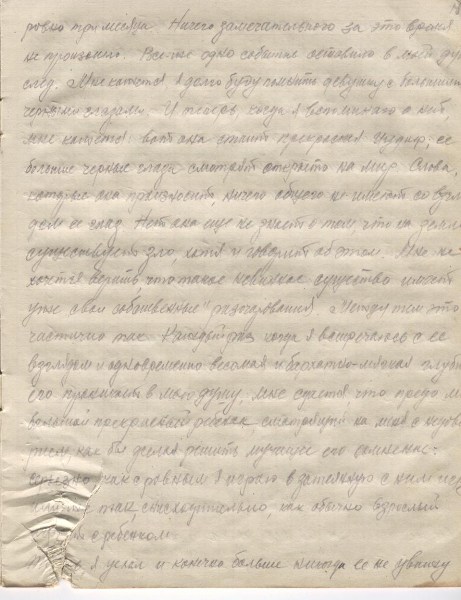 ровно три месяца. Ничего замечательного за это время
не произошло. Все-же одно событие оставило в моей душе
след. Мне кажется я долго буду помнить девушку с большими
черными глазами. И теперь когда я вспоминаю о ней
мне кажется: вот она стоит прекрасная, ее
большие черные глаза смотрят открыто на мир. Слова,
которые она произносит, ничего общего не имеют со взгля
дом ее глаз. Нет она еще не знает о том, что на земле
существует зло, хотя и говорит об этом. Мне не
хочется верить, что такое невинное существо имеет
уже свои собственные "разочарования". Между тем это
частично так. Каждый раз когда я встречаюсь с ее
взглядом и одновременно глубина
его проникает в мою душу, мне кажется что предо мной
большой прекрасный ребенок смотрит на меня с
тем, как бы желая решить мучащие его сомнения.
как равный я играю в затеянную с ним игру
так снисходительно, как обычно взрослый
с ребенком
я уехал и конечно больше никогда ее не увижу